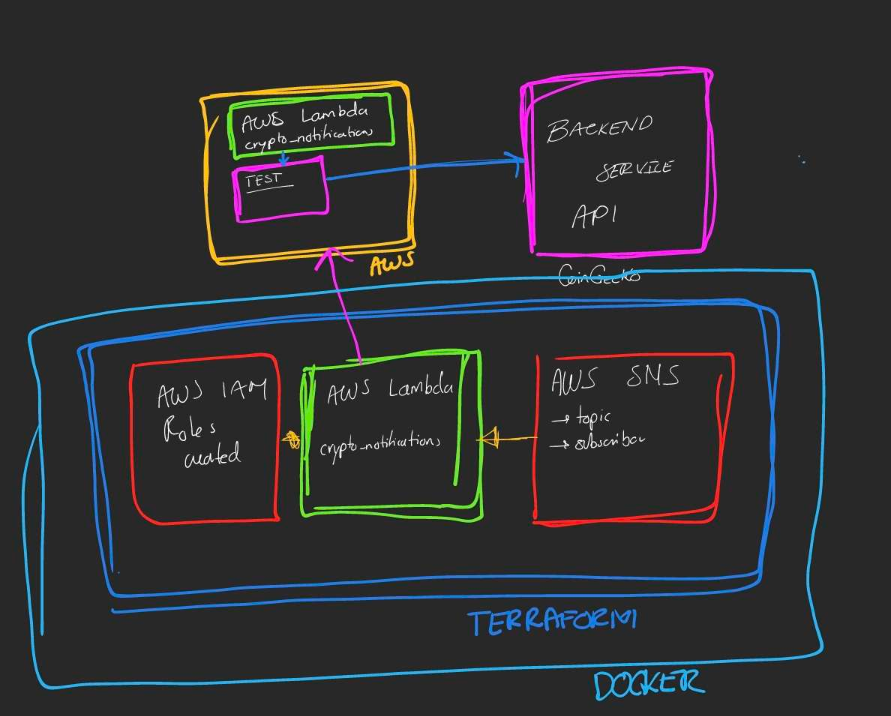 AWS Lambda
crypto_notifications
TEST
AWS
BACKEND
SERVICE
API
CoinGecko
AWS IAM
Roles
created
AWS Lambda
crypto_notifications
AWS SNS
→ topic
→ subscriber
TERRAFORM
DOCKER